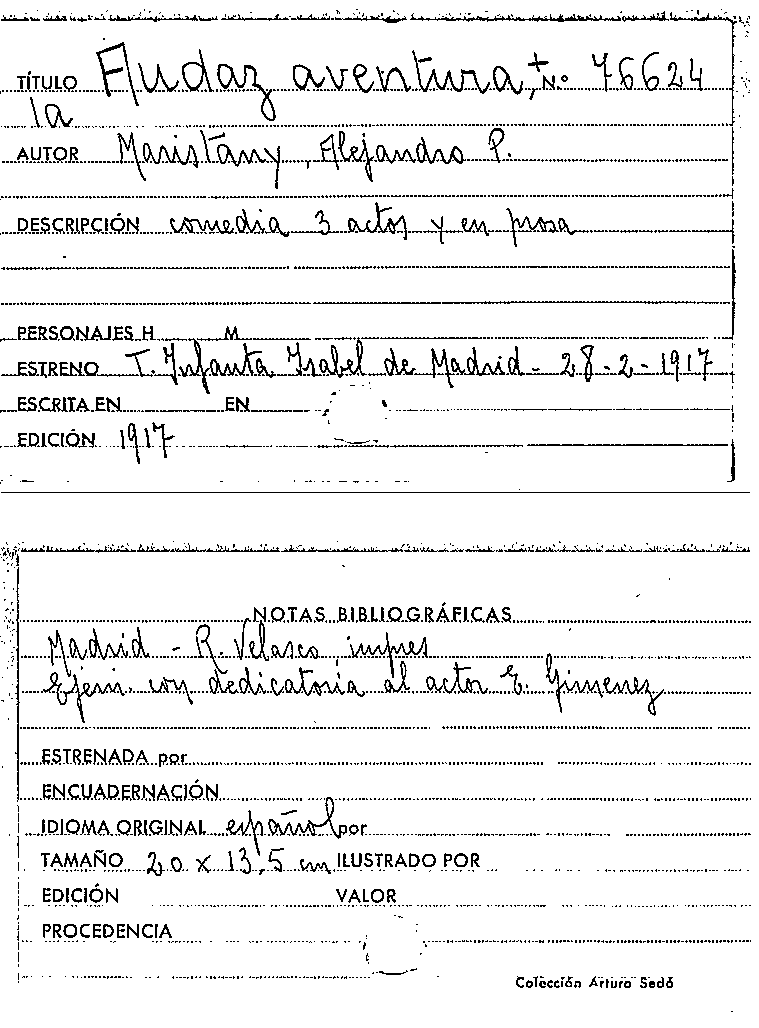 TÍTULO Audaz aventura, + N.º 76624
la
AUTOR Maristany, Alejandro P.
DESCRIPCIÓN comedia 3 actos y en prosa
PERSONAJES H M
ESTRENO T. Infanta Isabel de Madrid - 28 - 2 - 1917
ESCRITA EN EN
EDICIÓN 1917
NOTAS BIBLIOGRÁFICAS
Madrid - R. Velasco, impres
Ejem. con dedicatoria al actor E. Gimenez
ESTRENADA por
ENCUADERNACIÓN
IDIOMA ORIGINAL español por
TAMAÑO 20 x 13,5 cm ILUSTRADO POR
EDICIÓN VALOR
PROCEDENCIA
Colección Arturo Sedó